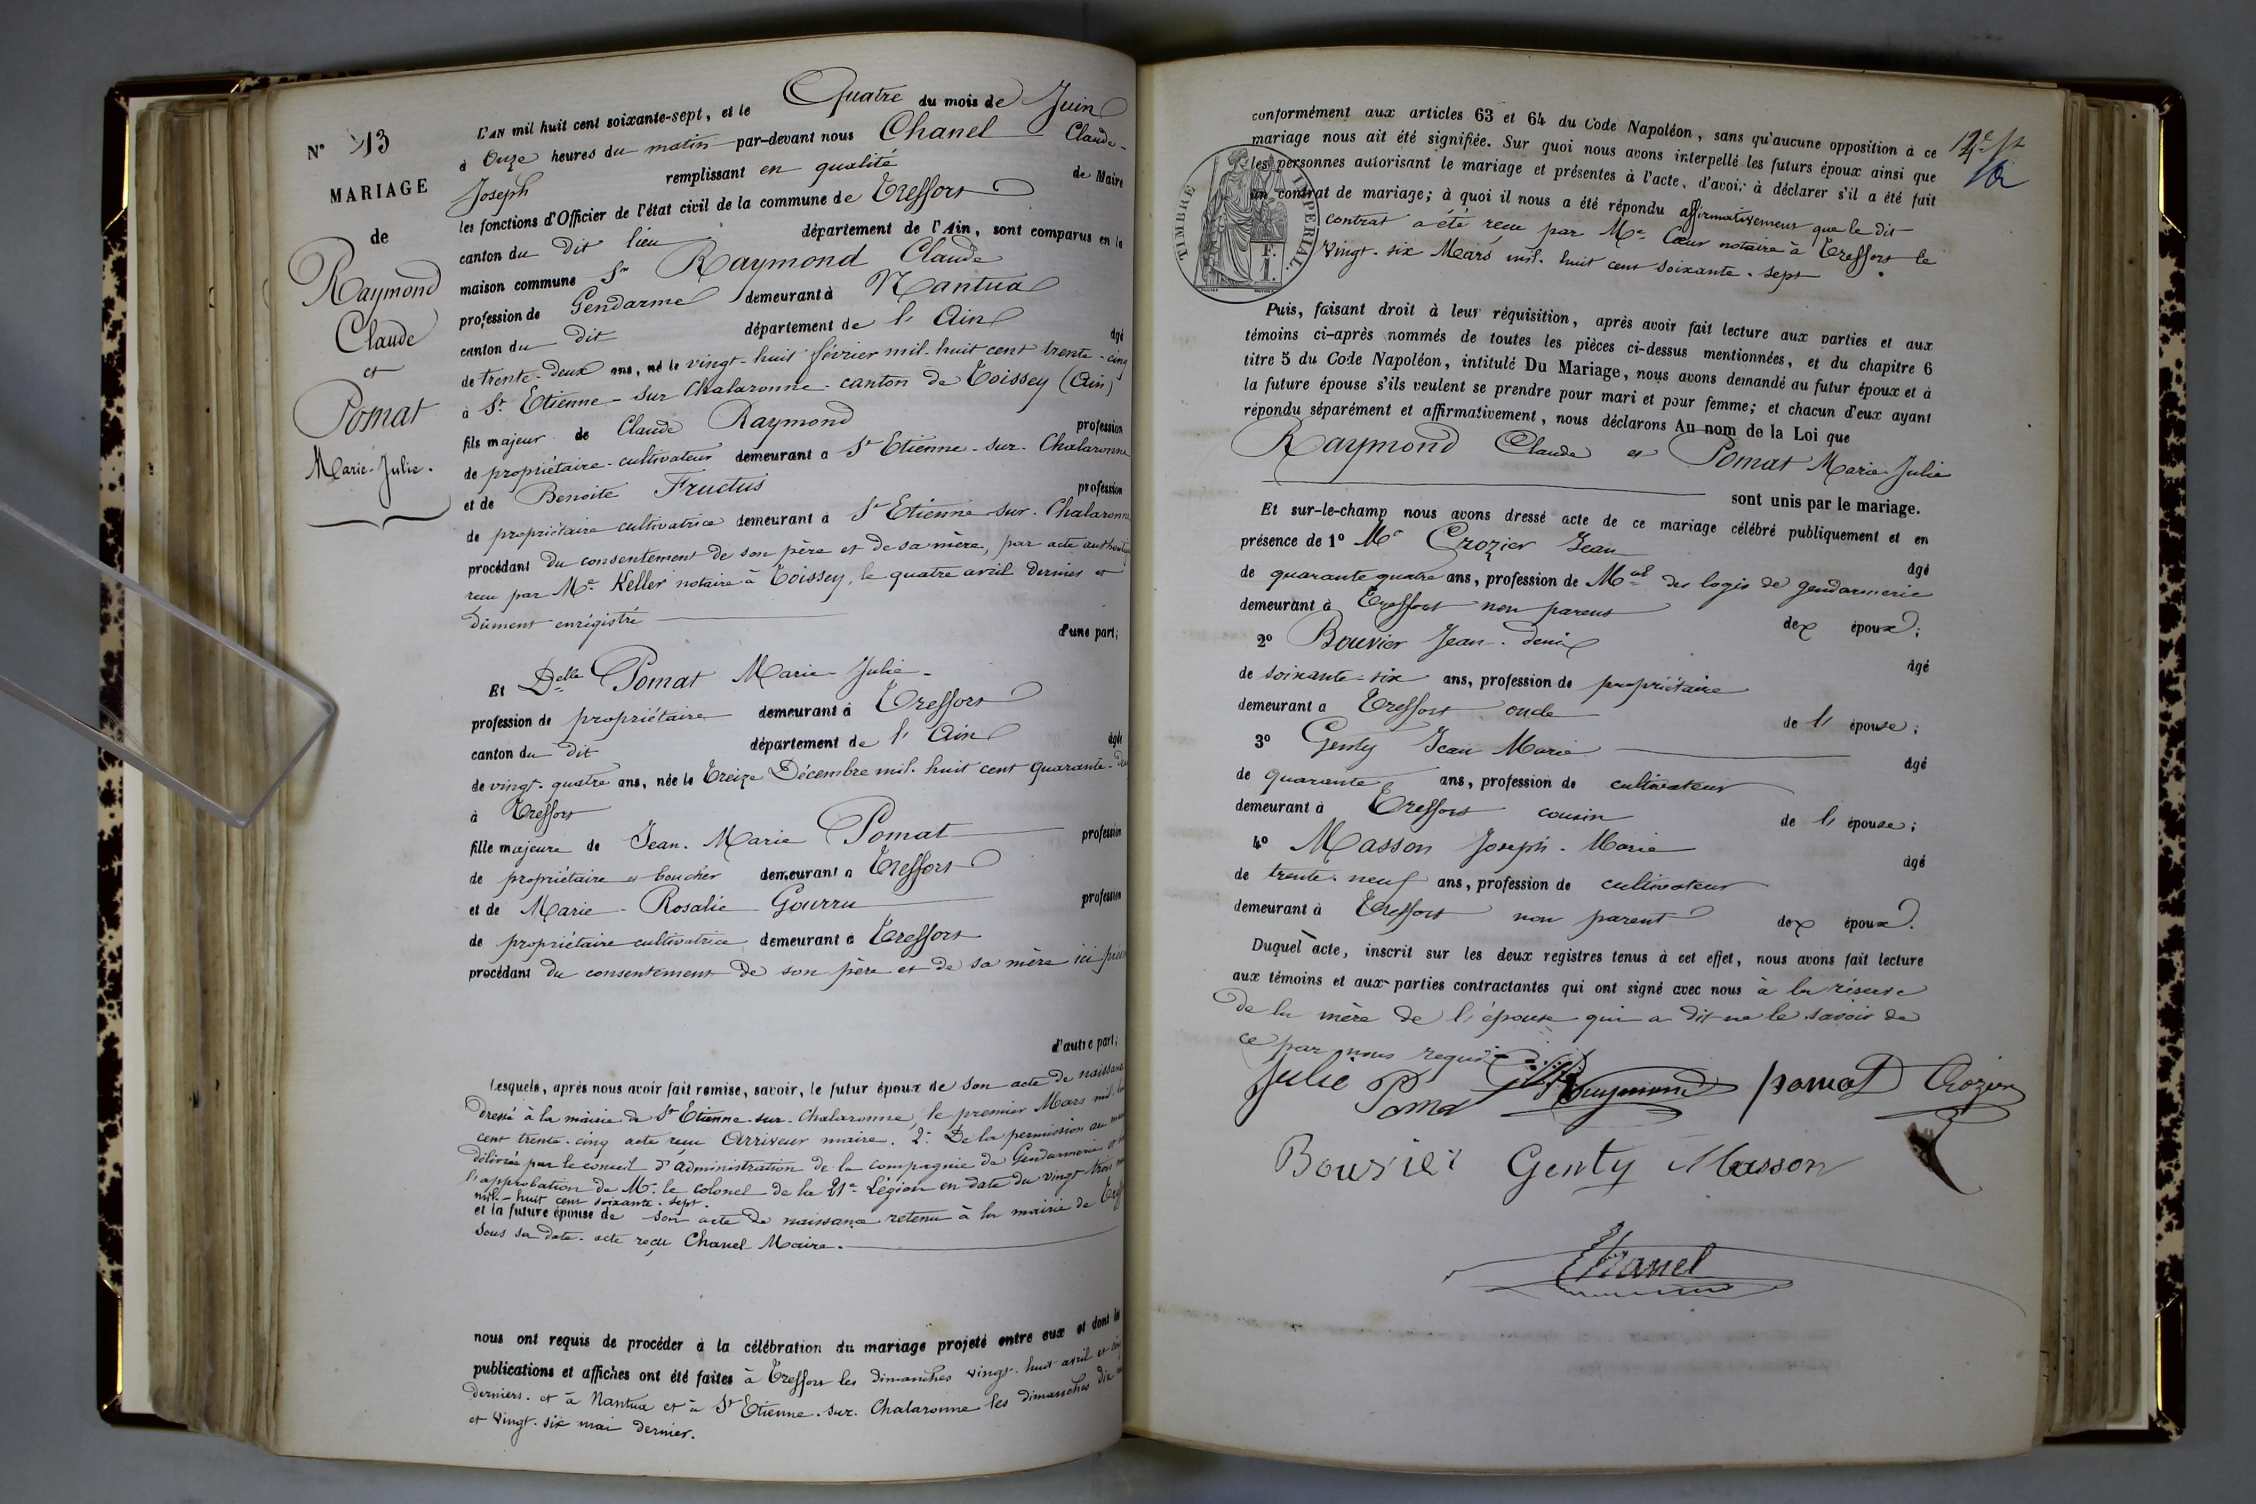 N° 13
MARIAGE
de
Raymond
Claude
et
Pomat
Marie-Julie.
L'AN mil huit cent soixante-sept, et le Quatre du mois de Juin
à Onze heures du matin par-devant nous Chanel Claude-
Joseph remplissant en qualité de Maire
les fonctions d'Officier de l'état civil de la commune de Treffort
canton du dit lieu département de l'Ain, sont comparus en la
maison commune Sr Raymond Claude
profession de Gendarme demeurant à Nantua
canton du dit département de l'Ain âgé
de trente-deux ans, né le vingt-huit février mil-huit cent trente-cinq
à St Etienne-sur Chalaronne-canton de Toissey (Ain)
fils majeur de Claude Raymond profession
de propriétaire-cultivateur demeurant à St Etienne-sur-Chalaronne
et de Benoite Fructus profession
de propriétaire cultivatrice demeurant à St Etienne-sur-Chalaronne
procédant du consentement de son père et de sa mère, par acte
reçu par Me Keller notaire à Toissey, le quatre avril dernier et
dûment enrégistré
d'une part;
Et Delle Pomat Marie-Julie-
profession de propriétaire demeurant à Treffort
canton du dit département de l'Ain âgée
de vingt-quatre ans, née le Treize Décembre mil-huit cent quarante-
à Treffort
fille majeure de Jean-Marie Pomat profession
de propriétaire et boucher demeurant à Treffort
et de Marie-Rosalie Gourru profession
de propriétaire cultivatrice demeurant à Treffort
procédant du consentement de son père et de sa mère ici
d'autre part;
Lesquels, après nous avoir fait remise, savoir, le futur époux de son acte de naissance
dressé à la mairie de St Etienne-sur-Chalaronne, le premier Mars mil
cent trente-cinq acte reçu Arriveur maire. 2° De la permission au
délivrée par le conseil d'administration de la compagnie de Gendarmerie et
l'approbation de Mr le colonel de la 21e Légion en date du vingt trois
mil-huit cent soixante-sept.
et la future épouse de son acte de naissance retenu à la mairie de
sous sa date-acte reçu Chanel Maire.
nous ont requis de procéder à la célébration du mariage projeté entre eux et dont les
publications et affiches ont été faites à Treffort les dimanches vingt-huit avril et
derniers-et à Nantua et à St Etienne-sur-Chalaronne les dimanches
et vingt-six mai dernier.
conformément aux articles 63 et 64 du Code Napoléon, sans qu'aucune opposition à ce
mariage nous ait été signifiée. Sur quoi nous avons interpellé les futurs époux ainsi que
les personnes autorisant le mariage et présentes à l'acte, d'avoir à déclarer s'il a été fait
un contrat de mariage; à quoi il nous a été répondu affirmativement que le dit
contrat a été reçu par Me Cœur notaire à Treffort le
vingt-six Mars mil-huit cent soixante-sept
TIMBRE IMPERIAL.
F.
1.
Puis, faisant droit à leur réquisition, après avoir fait lecture aux parties et aux
témoins ci-après nommés de toutes les pièces ci-dessus mentionnées, et du chapitre 6
titre 5 du Code Napoléon, intitulé Du Mariage, nous avons demandé au futur époux et à
la future épouse s'ils veulent se prendre pour mari et pour femme; et chacun d'eux ayant
répondu séparément et affirmativement, nous déclarons Au nom de la Loi que
Raymond Claude et Pomat Marie-Julie
sont unis par le mariage.
Et sur-le-champ nous avons dressé acte de ce mariage célébré publiquement et en
présence de 1° Mr Crozier Jean âgé
de quarante quatre ans, profession de Mal des logis de gendarmerie
demeurant à Treffort non parent des époux;
2° Bouvier Jean-denis âgé
de soixante-six ans, profession de propriétaire
demeurant à Treffort oncle de l'épouse;
3° Genty Jean Marie âgé
de quarante ans, profession de cultivateur
demeurant à Treffort cousin de l'épouse;
4° Masson Joseph-Marie âgé
de trente-neuf ans, profession de cultivateur
demeurant à Treffort non parent des époux.
Duquel acte, inscrit sur les deux registres tenus à cet effet, nous avons fait lecture
aux témoins et aux parties contractantes qui ont signé avec nous à la réserve
de la mère de l'épouse qui a dit ne le savoir de
ce par nous requise
Julie Pomat Raymond pomat Crozier
Bouvier Genty Masson
Chanel